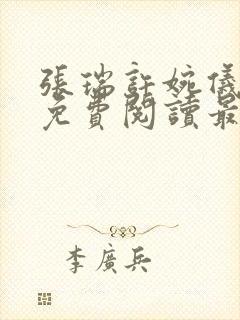 張瑞許婉儀
免費閱讀最
李廣兵